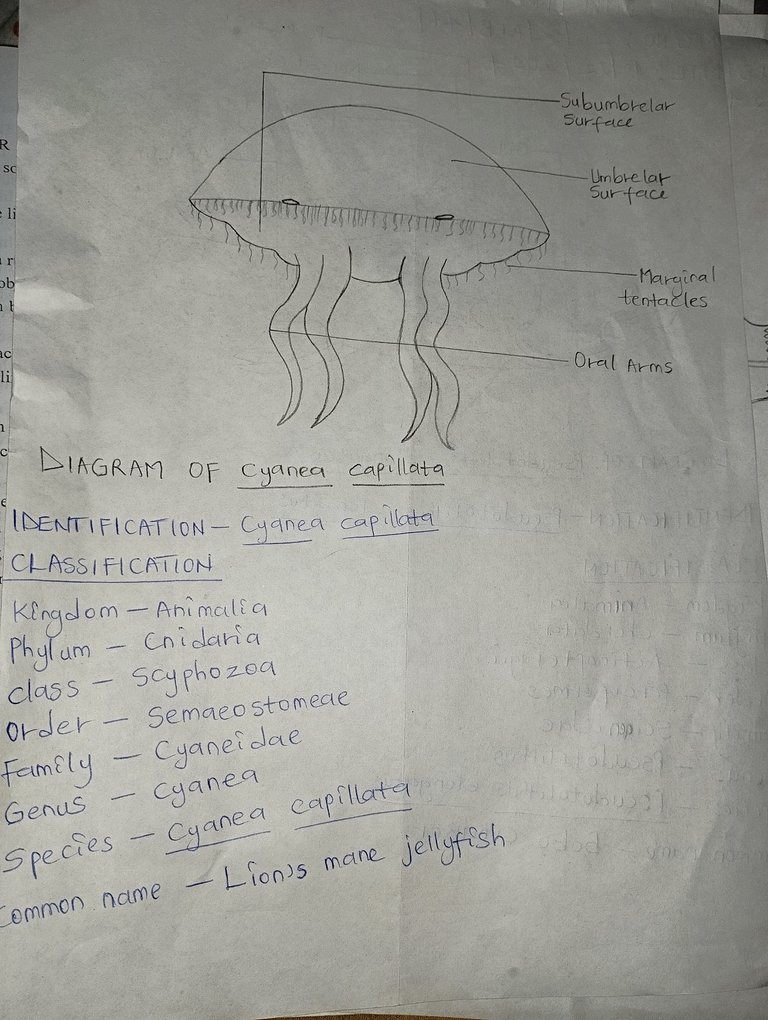 Subumbrelar
Surface
Umbrelar
Surface
Marginal
tentacles
Oral Arms
DIAGRAM OF Cyanea capillata
IDENTIFICATION – Cyanea capillata
CLASSIFICATION
Kingdom – Animalia
Phylum – Cnidaria
class – Scyphozoa
Order – Semaeostomeae
Family – Cyaneidae
Genus – Cyanea
Species – Cyanea capillata
Common name – Lion's mane jellyfish